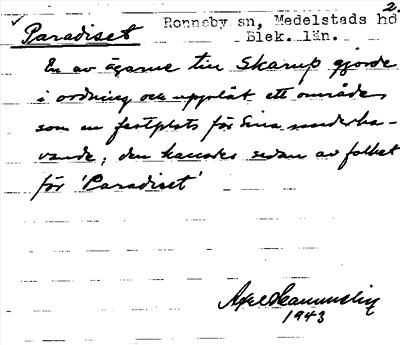 2.
Paradiset Ronneby sn, Medelstads hd
Blek. län.
En av ägarne till Skarup gjorde
i ordning och upplät ett område
som en festplats för sina underha-
vande; den kallades sedan av folket
för 'Paradiset'
Axel
1943